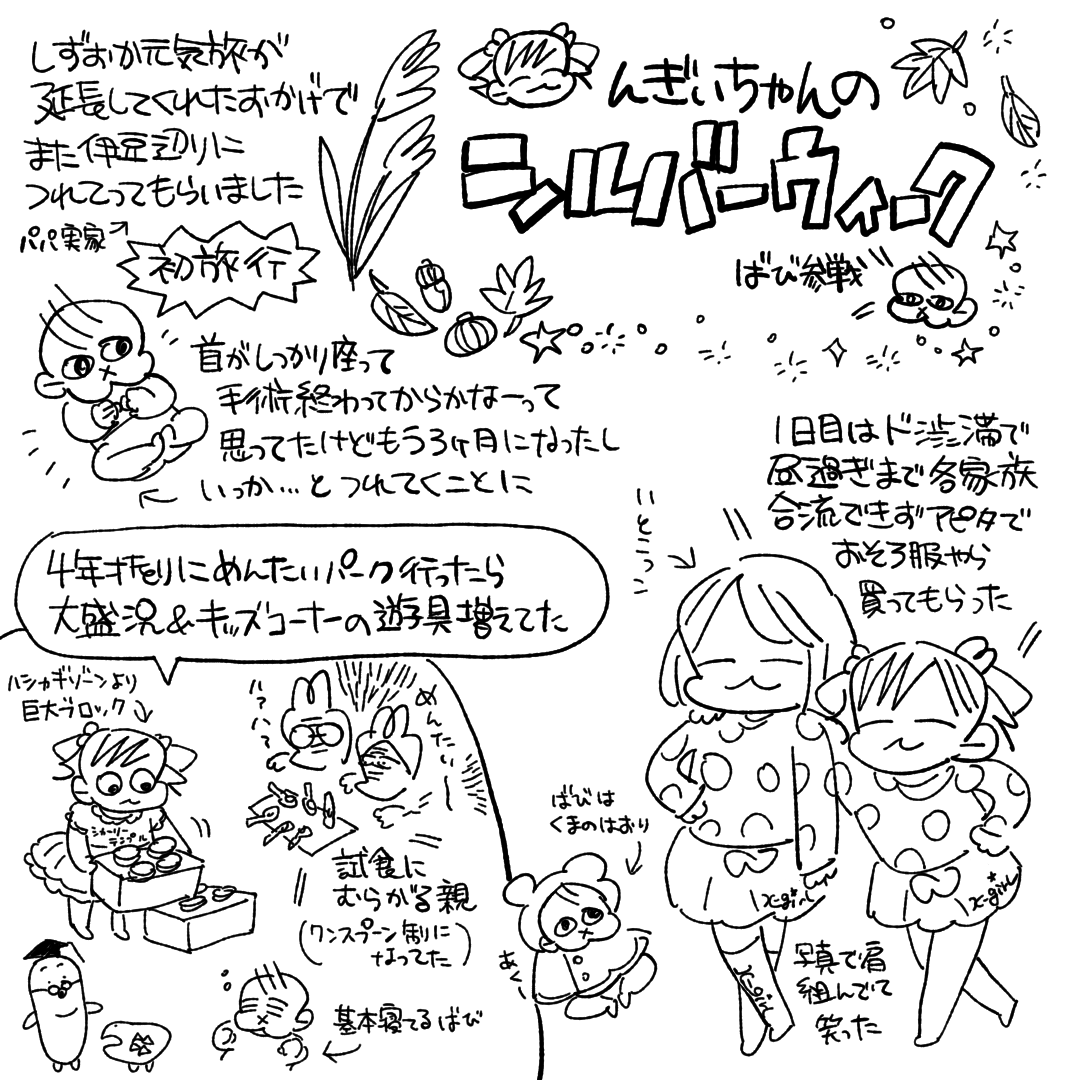 んぎぃちゃんの
シルバーウィーク
ばび参戦
しずおか元気旅が
延長してくれたおかげで
また伊豆辺りに
つれてってもらいました
パパ実家
初旅行
首がしっかり座って
手術終わってからかなーって
思ってたけどもう3ヶ月になったし
いっか…とつれてくことに
1日目はド渋滞で
昼過ぎまで各家族
合流できずアピタで
おそろ服やら
買ってもらった
いとこっこ
X-girl
X-girl
X-girl
写真で肩
組んでて
笑った
4年ぶりにめんたいパーク行ったら
大盛況&キッズコーナーの遊具増えてた
ハシカギゾーンより
巨大ブロック
シャーリー
テンプル
めんたいー
試食に
むらがる親
(ワンスプーン制に
なってた)
ばびは
くまのはおり
あくー
基本寝てるばび